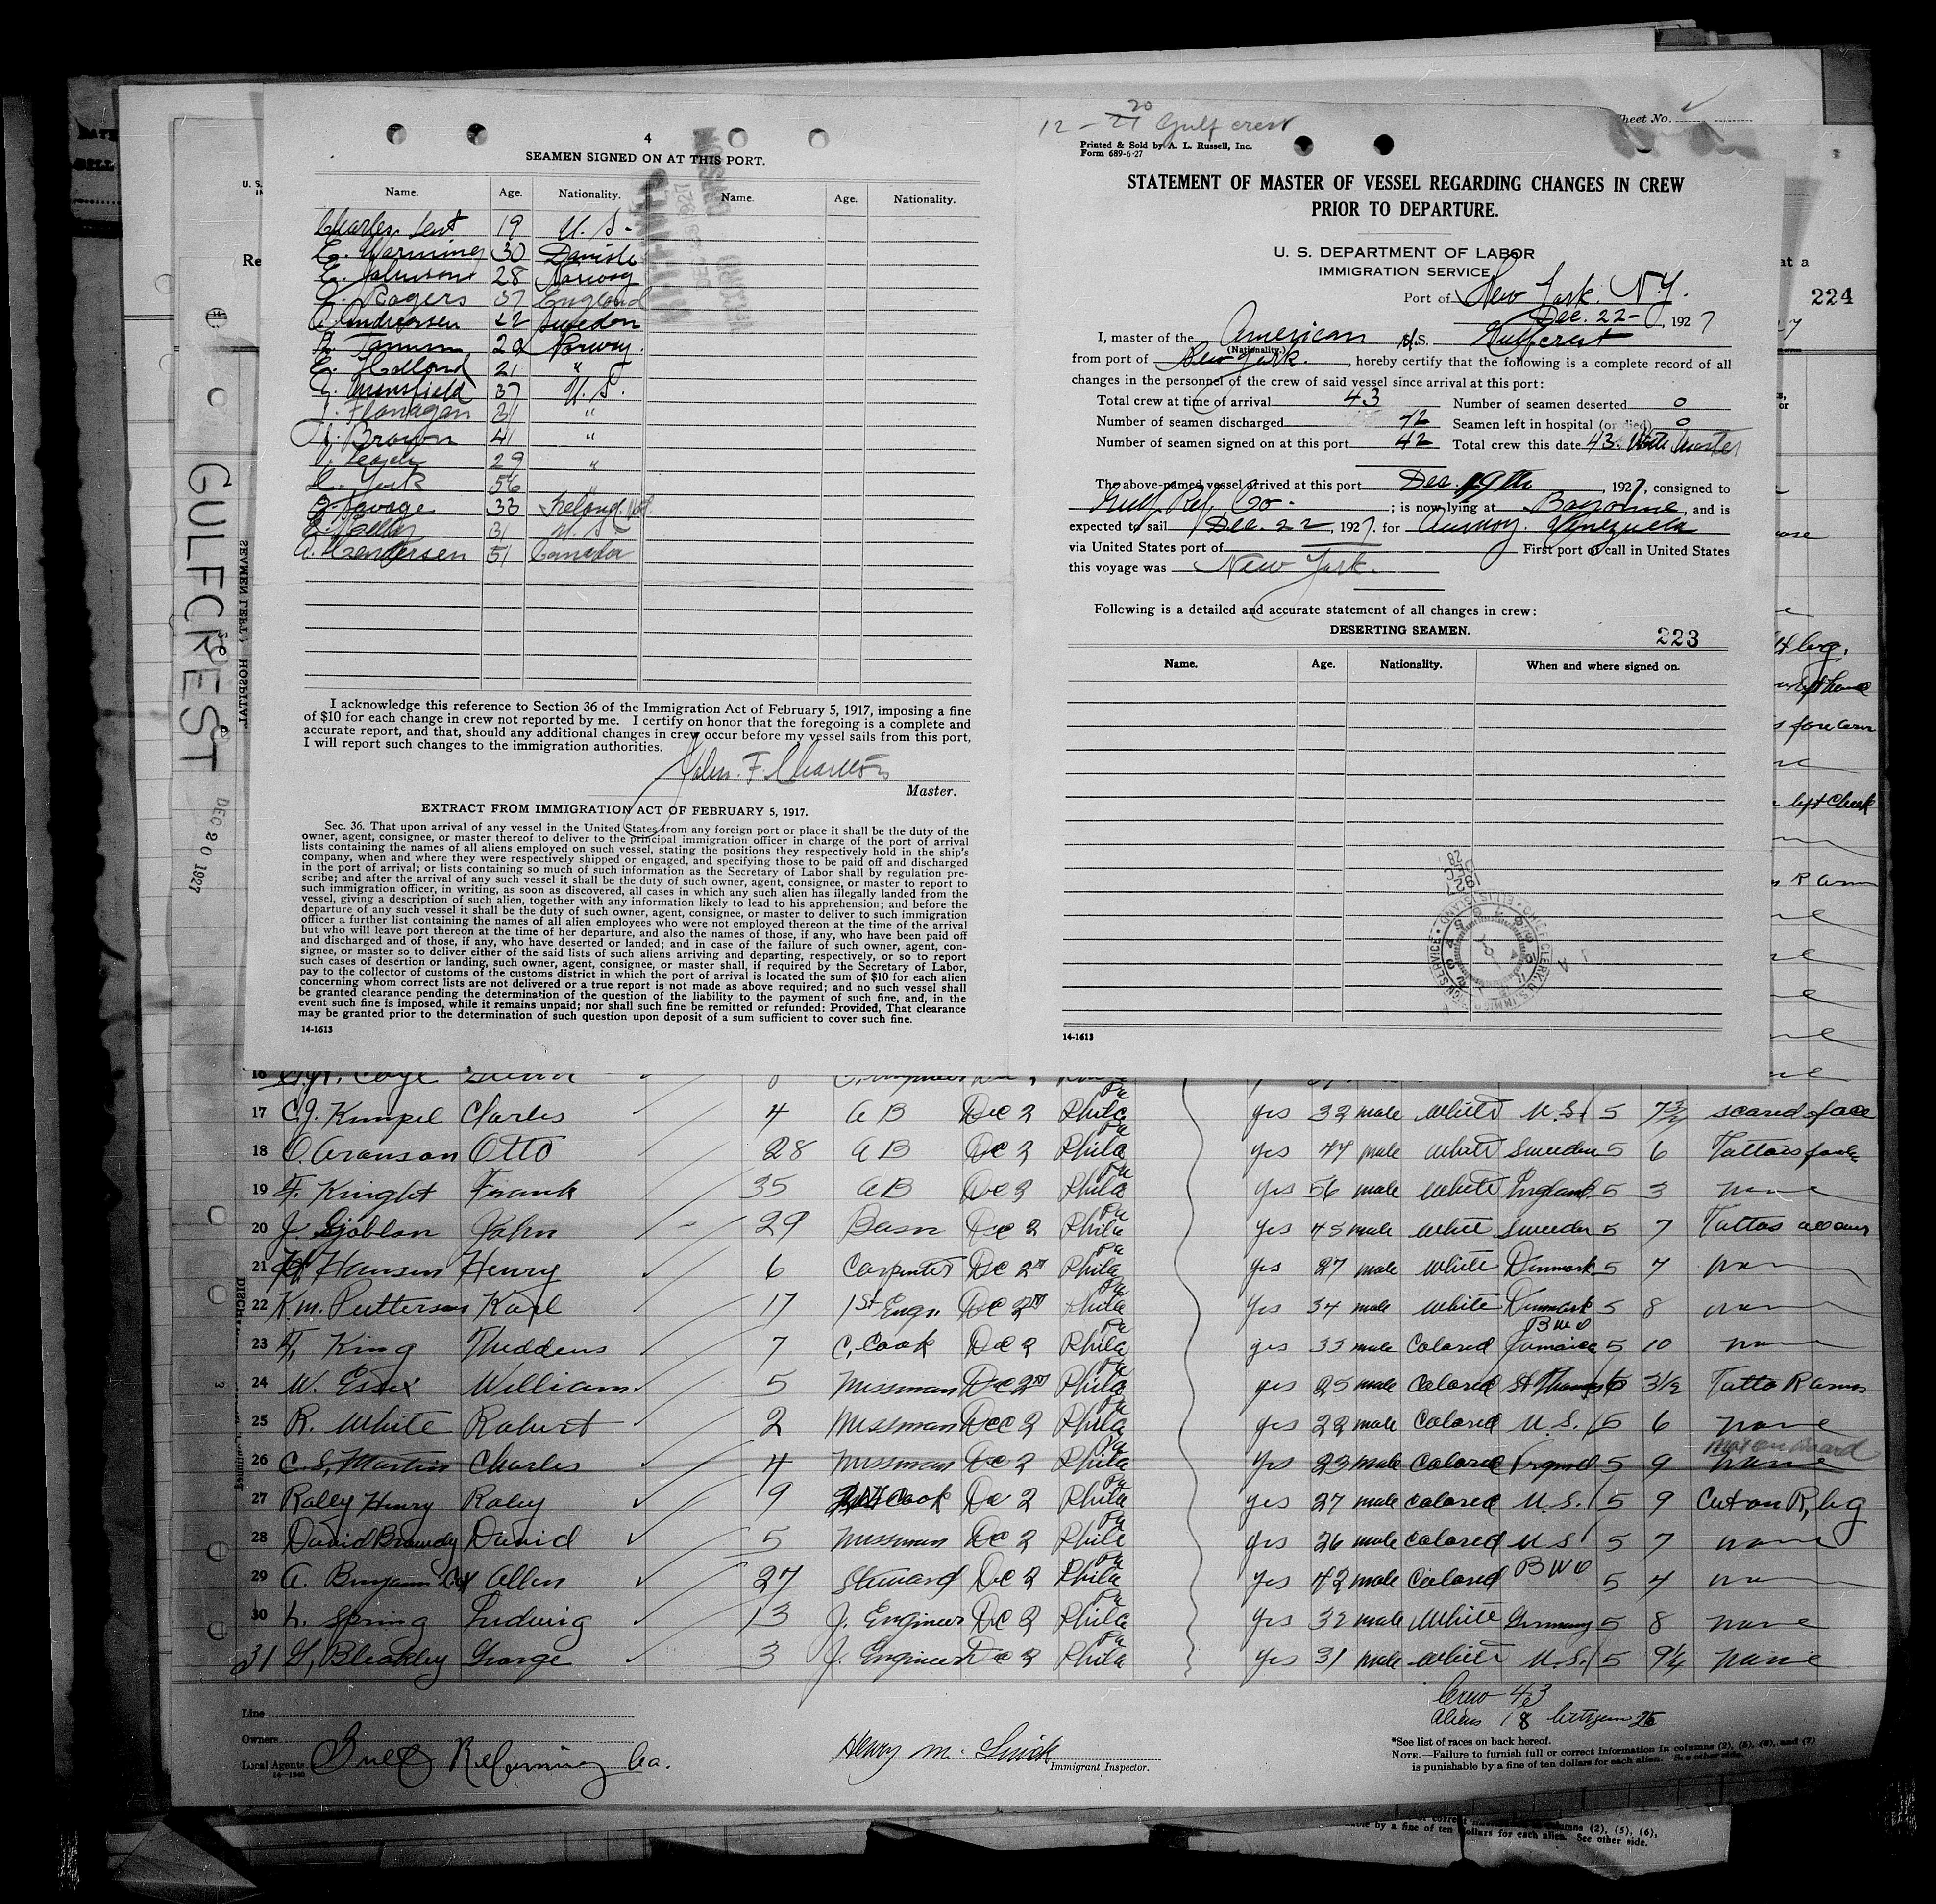 4
SEAMEN SIGNED ON AT THIS PORT.
Name. Age. Nationality. Name. Age. Nationality.
Charles 19 U. S.
30 Danish
28 Norway
Rogers 37 England
22 Sweden
Norway.
E. Holland 21 "
Mansfield 37 U. S.
Flanagan 31 "
Brown 41 "
29 "
York 56 "
Savage 33 Ireland
31 U. S.
Hendersen 51 Canada
I acknowledge this reference to Section 36 of the Immigration Act of February 5, 1917, imposing a fine
of $10 for each change in crew not reported by me. I certify on honor that the foregoing is a complete and
accurate report, and that, should any additional changes in crew occur before my vessel sails from this port,
I will report such changes to the immigration authorities.
John. F. Charlton
Master.
EXTRACT FROM IMMIGRATION ACT OF FEBRUARY 5, 1917.
Sec. 36. That upon arrival of any vessel in the United States from any foreign port or place it shall be the duty of the
owner, agent, consignee, or master thereof to deliver to the principal immigration officer in charge of the port of arrival
lists containing the names of all aliens employed on such vessel, stating the positions they respectively hold in the ship's
company, when and where they were respectively shipped or engaged, and specifying those to be paid off and discharged
in the port of arrival; or lists containing so much of such information as the Secretary of Labor shall by regulation pre-
scribe; and after the arrival of any such vessel it shall be the duty of such owner, agent, consignee, or master to report to
such immigration officer, in writing, as soon as discovered, all cases in which any such alien has illegally landed from the
vessel, giving a description of such alien, together with any information likely to lead to his apprehension; and before the
departure of any such vessel it shall be the duty of such owner, agent, consignee, or master to deliver to such immigration
officer a further list containing the names of all alien employees who were not employed thereon at the time of the arrival
but who will leave port thereon at the time of her departure, and also the names of those, if any, who have been paid off
and discharged and of those, if any, who have deserted or landed; and in case of the failure of such owner, agent, con-
signee, or master so to deliver either of the said lists of such aliens arriving and departing, respectively, or so to report
such cases of desertion or landing, such owner, agent, consignee, or master shall, if required by the Secretary of Labor,
pay to the collector of customs of the customs district in which the port of arrival is located the sum of $10 for each alien
concerning whom correct lists are not delivered or a true report is not made as above required; and no such vessel shall
be granted clearance pending the determination of the question of the liability to the payment of such fine, and, in the
event such fine is imposed, while it remains unpaid; nor shall such fine be remitted or refunded: Provided, That clearance
may be granted prior to the determination of such question upon deposit of a sum sufficient to cover such fine.
14-1613
12 - 21 20 Gulfcrest
Printed & Sold by A. L. Russell, Inc.
Form 689-6-27
STATEMENT OF MASTER OF VESSEL REGARDING CHANGES IN CREW
PRIOR TO DEPARTURE.
U. S. DEPARTMENT OF LABOR
IMMIGRATION SERVICE
Port of New York. N.Y.
Dec. 22 -, 1927
I, master of the American S.S. Gulfcrest
(Nationality.)
from port of New York., hereby certify that the following is a complete record of all
changes in the personnel of the crew of said vessel since arrival at this port:
Total crew at time of arrival 43 Number of seamen deserted 0
Number of seamen discharged 42 Seamen left in hospital (or died) 0
Number of seamen signed on at this port 42 Total crew this date 43. With Master
The above-named vessel arrived at this port Dec. 19th, 1927, consigned to
Gulf Ref. Co -; is now lying at Bayonne, and is
expected to sail Dec. 22, 1927. for Venezuela
via United States port of First port of call in United States
this voyage was New York.
Following is a detailed and accurate statement of all changes in crew:
DESERTING SEAMEN.
223
Name. Age. Nationality. When and where signed on.
14-1613
Sheet No.
224
GULFCREST
DEC 20 1927
17 C.J. Kimpel Charles 4 AB Dec 2 Phila Pa yes 32 male White U.S. 5 7½ scared face
18 O. Aronson Otto 28 AB Dec 2 Phila Pa yes 47 male White Sweden 5 6
19 F. Knight Frank 35 AB Dec 2 Phila Pa yes 56 male White England 5 3 none
20 J. Sjoblon John 29 Bosn Dec 2 Phila Pa yes 45 male White Sweden 5 7
21 H. Hansen Henry 6 Carpenter Dec 2nd Phila Pa yes 27 male White Denmark 5 7 none
22 K.M. Petterson Karl 17 1st Engr. Dec 2nd Phila Pa yes 34 male White Denmark 5 8 none
23 F. King Theddeus 7 C. Cook Dec 2 Phila Pa yes 33 male Colored Jamaica BWI 5 10 none
24 W. Essex William 5 Messman Dec 2nd Phila Pa yes 25 male Colored St Thomas 5 3½
25 R. White Robert 2 Messman Dec 2 Phila Pa yes 22 male Colored U.S. 5 6 none
26 C.S. Martin Charles 4 Messman Dec 2 Phila Pa yes 23 male Colored 5 9 none Not on Board
27 Raley Henry Raley 9 Cook Dec 2 Phila Pa yes 27 male Colored U.S. 5 9 Cut on R, leg
28 David Brawdy David 5 Messman Dec 2 Phila Pa yes 26 male Colored U.S. 5 7 none
29 A. Allen 27 Steward Dec 2 Phila Pa yes 42 male Colored BWI 5 4 none
30 L. Spring Ludwig 13 J. Engineer Dec 2 Phila Pa yes 32 male White Germany 5 8 none
31 G. Bleakley George 3 J. Engineer Dec 2 Phila Pa yes 31 male White U.S. 5 9¼ none
Crew 43
Aliens 18 Citizen 25
Line
Owners
Local Agents Gulf Refining Co.
14-1240
Henry M.
Immigrant Inspector.
*See list of races on back hereof.
NOTE.—Failure to furnish full or correct information in columns (2), (5), (6), and (7)
is punishable by a fine of ten dollars for each alien. See other side.
columns (2), (5), (6),
by a fine of ten dollars for each alien. See other side.